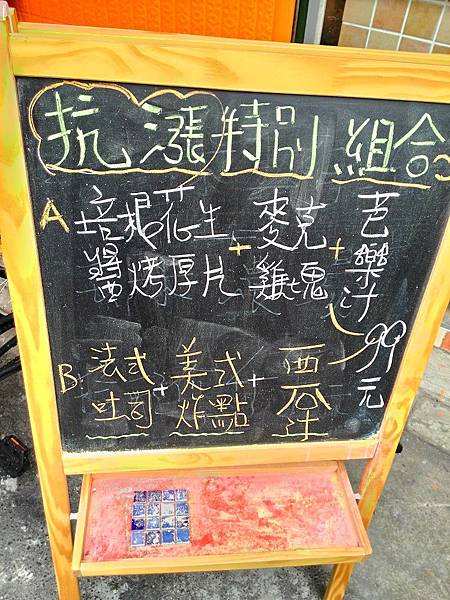 抗漲特別組合
A 培根花生醬烤厚片 + 麥克雞塊 + 芭樂汁
B. 法式吐司 + 美式炸點 + 西瓜汁
99元